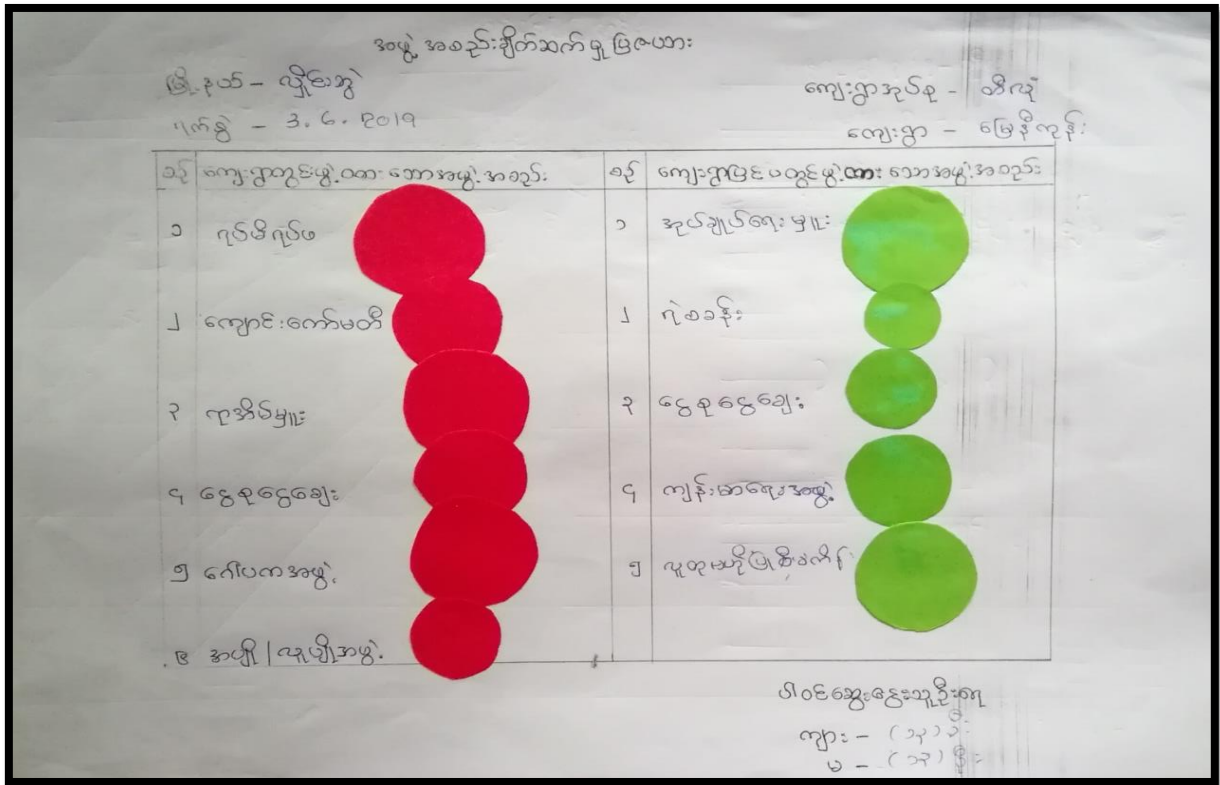 အဖွဲ့အစည်းချိတ်ဆက်မှုပြဇယား
မြို့နယ် - လှိုင်းဘွဲ့
ကျေးရွာအုပ်စု - တီလုံ
ရက်စွဲ - 3. 6. 2019
ကျေးရွာ - မြေနီကုန်း
စဉ် ကျေးရွာတွင်းဖွဲ့ထားသောအဖွဲ့အစည်း စဉ် ကျေးရွာပြင်ပတွင်ဖွဲ့ထားသောအဖွဲ့အစည်း
၁ ရပ်မိရပ်ဖ ၁ အုပ်ချုပ်ရေးမှူး
၂ ကျောင်းကော်မတီ ၂ ရဲစခန်း
၃ ရာအိမ်မှူး ၃ ငွေစုငွေချေး
၄ ငွေစုငွေချေး ၄ ကျန်းမာရေးအဖွဲ့
၅ ဂေါပကအဖွဲ့ ၅ လူထုဗဟိုပြုစီမံကိန်း
၆ အပျို/လူပျိုအဖွဲ့
ပါဝင်ဆွေးနွေးသူဦးရေ
ကျား - (၁၃) ဦး
မ - (၁၃) ဦး